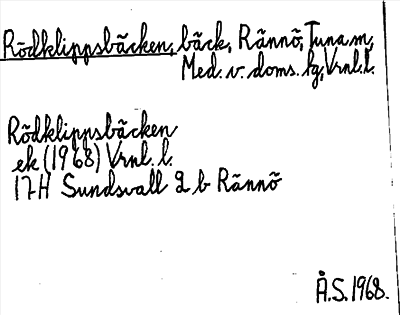 Rödklippsbäcken, bäck, Rännö, Tuna sn,
Med. v. doms. hg, Vrnl. l.
Rödklippsbäcken
ek (1968) Vrnl. l.
17H Sundsvall 2 b Rännö
Å.S. 1968.